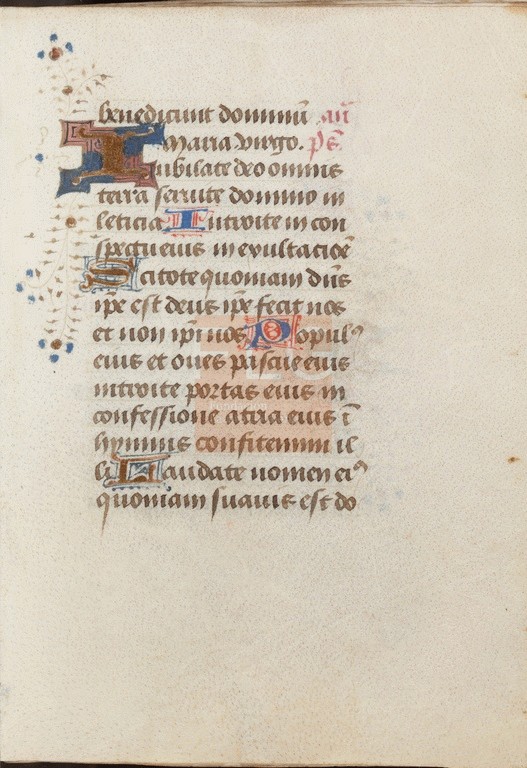 benedicunt dominū añ
Maria virgo. ps̄
Iubilate deo omnis
terra seruite domino in
leticia Introite in con
spectu eius in exultacioē
Scitote quoniam dn̄s
ip̄e est deus ip̄e fecit nos
et non ip̄i nos Populꝰ
eius et oues pascue eius
introite portas eius in
confessione atria eius ī
hymnis confitemini il
li Laudate nomen eiꝰ
quoniam suauis est do